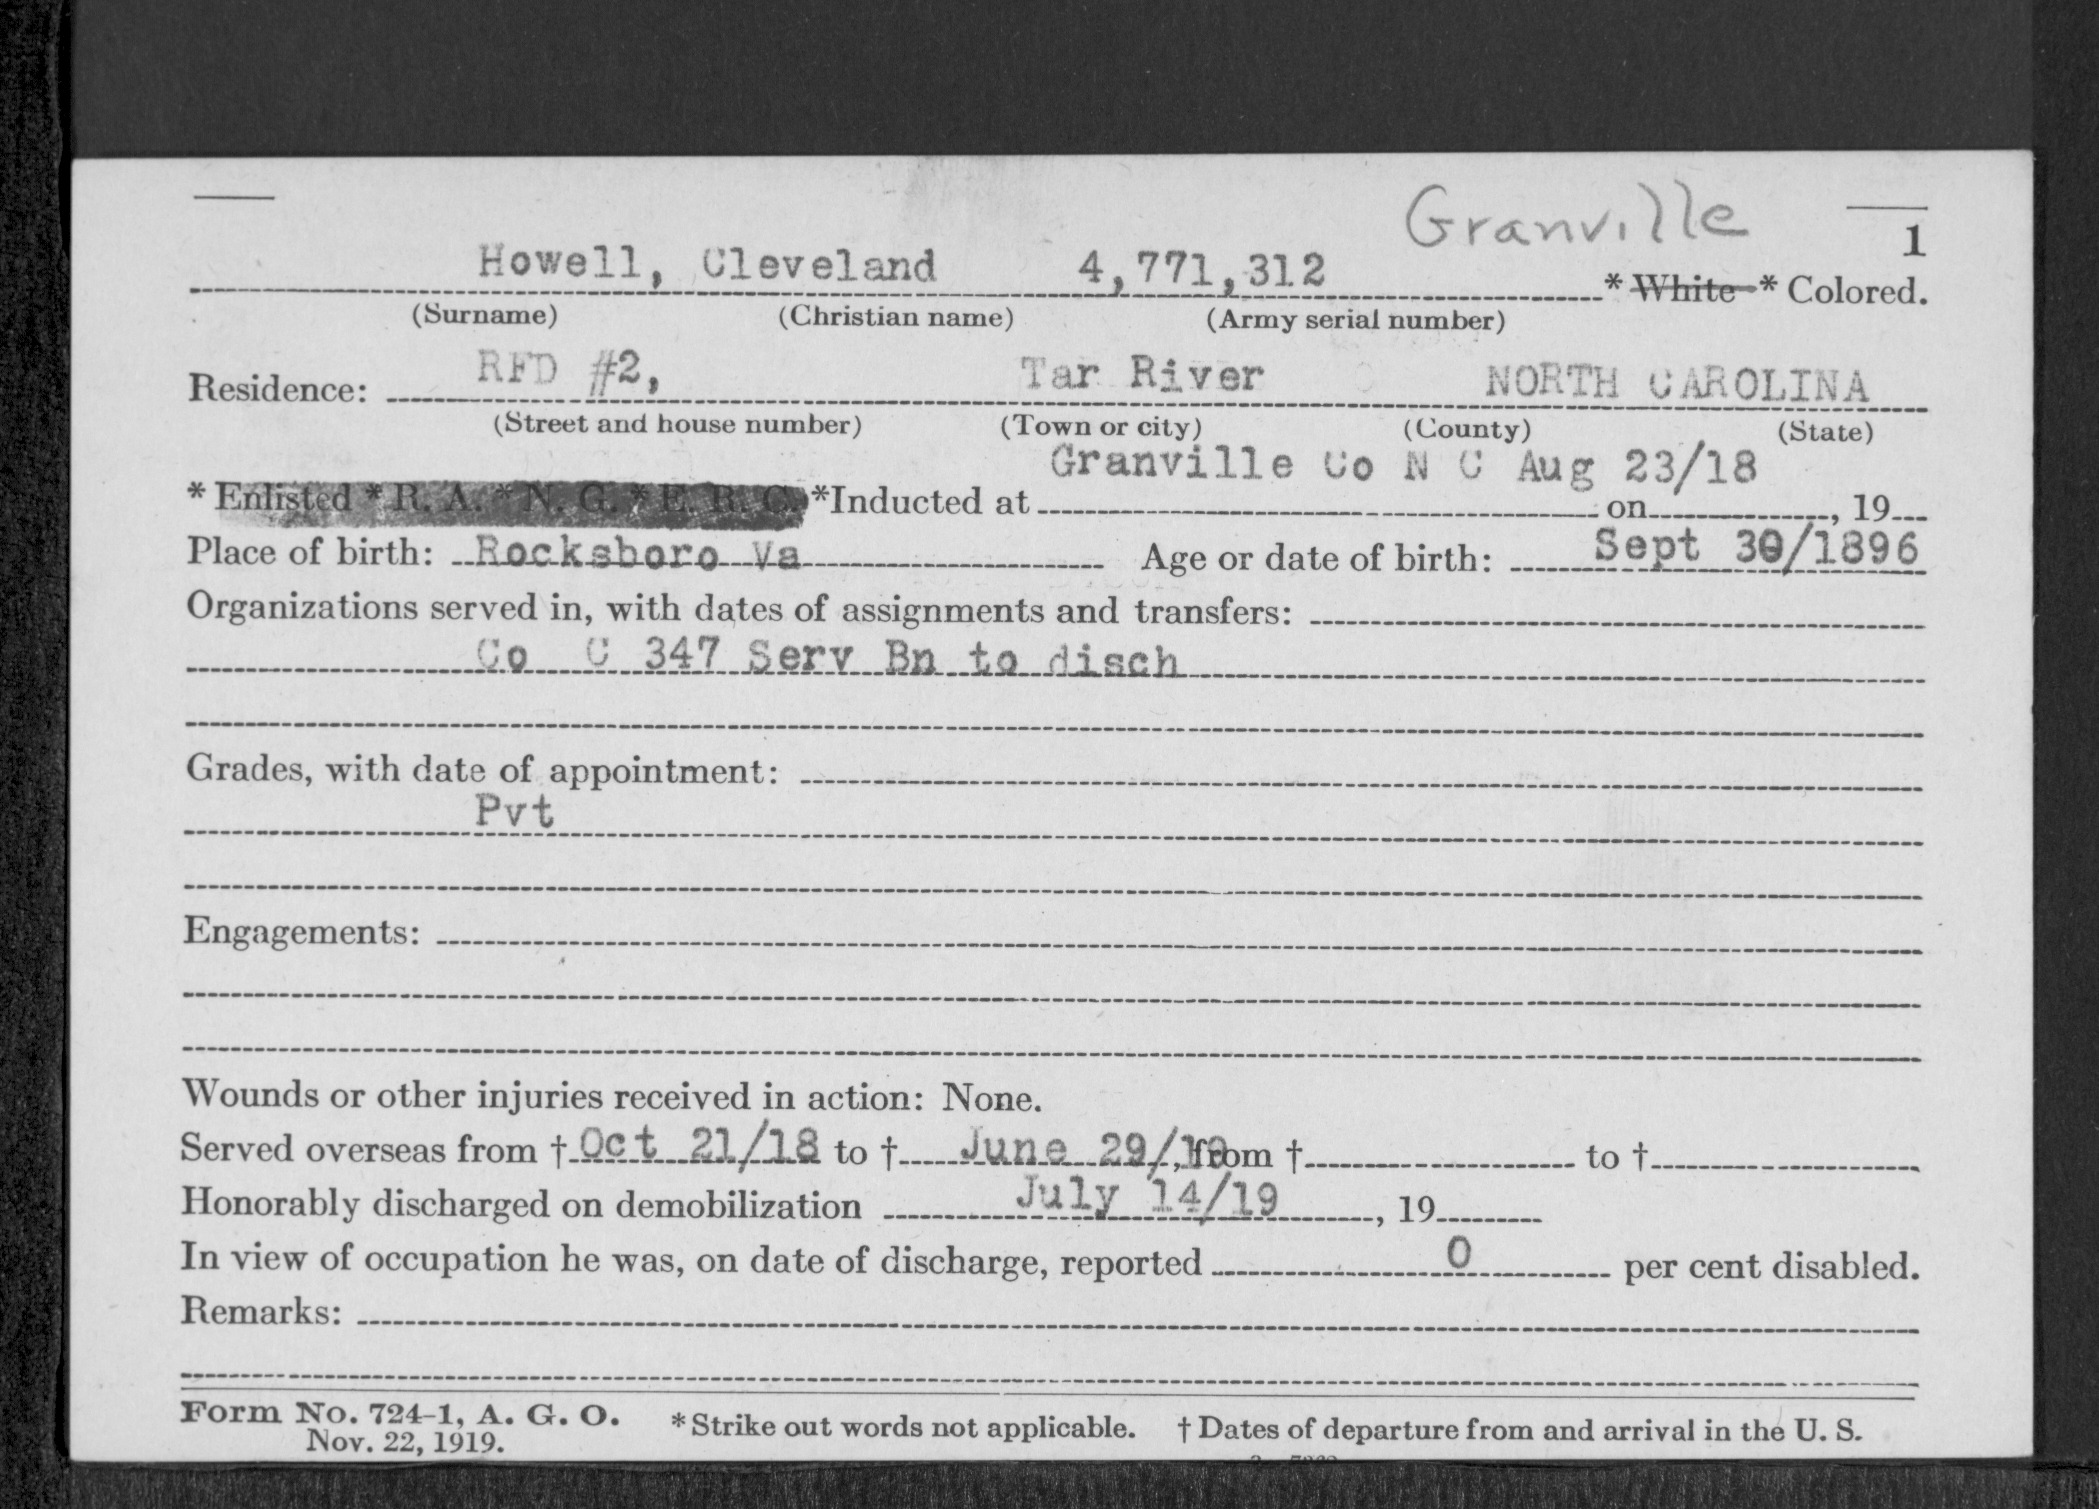 Granville
1
Howell, Cleveland 4,771,312 * White * Colored.
(Surname) (Christian name) (Army serial number)
Residence: RFD #2, Tar River NORTH CAROLINA
(Street and house number) (Town or city) (County) (State)
Granville Co N C Aug 23/18
* Enlisted * R. A. * N. G. * E. R. C. *Inducted at on , 19
Place of birth: Rocksboro Va Age or date of birth: Sept 30/1896
Organizations served in, with dates of assignments and transfers:
Co C 347 Serv Bn to disch
Grades, with date of appointment:
Pvt
Engagements:
Wounds or other injuries received in action: None.
Served overseas from † Oct 21/18 to † June 29/19, from † to †
Honorably discharged on demobilization July 14/19 , 19
In view of occupation he was, on date of discharge, reported 0 per cent disabled.
Remarks:
Form No. 724-1, A. G. O. * Strike out words not applicable. † Dates of departure from and arrival in the U. S.
Nov. 22, 1919.